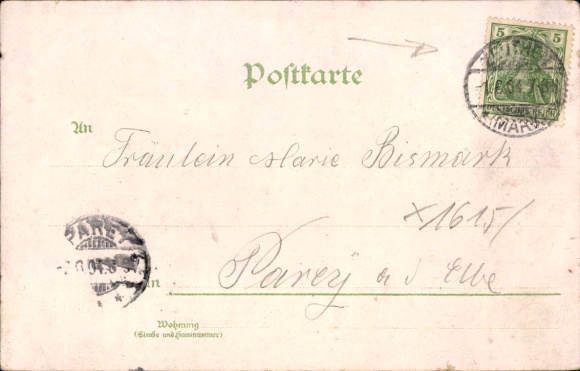 5 5
Postkarte
DEUTSCHES REICH
(MARK)
An
Fräulein Marie Bismark
X 1615/
PAREY
in
Parey a d Elbe
Wohnung
(Straße und Hausnummer)